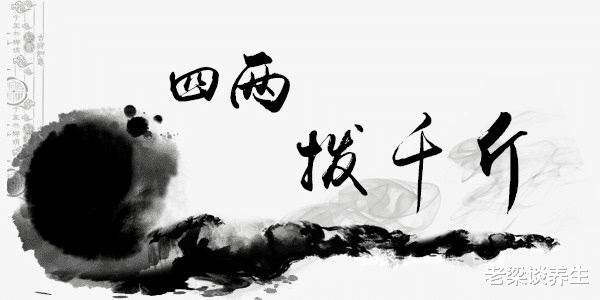 四两
拨千斤
老梁谈养生